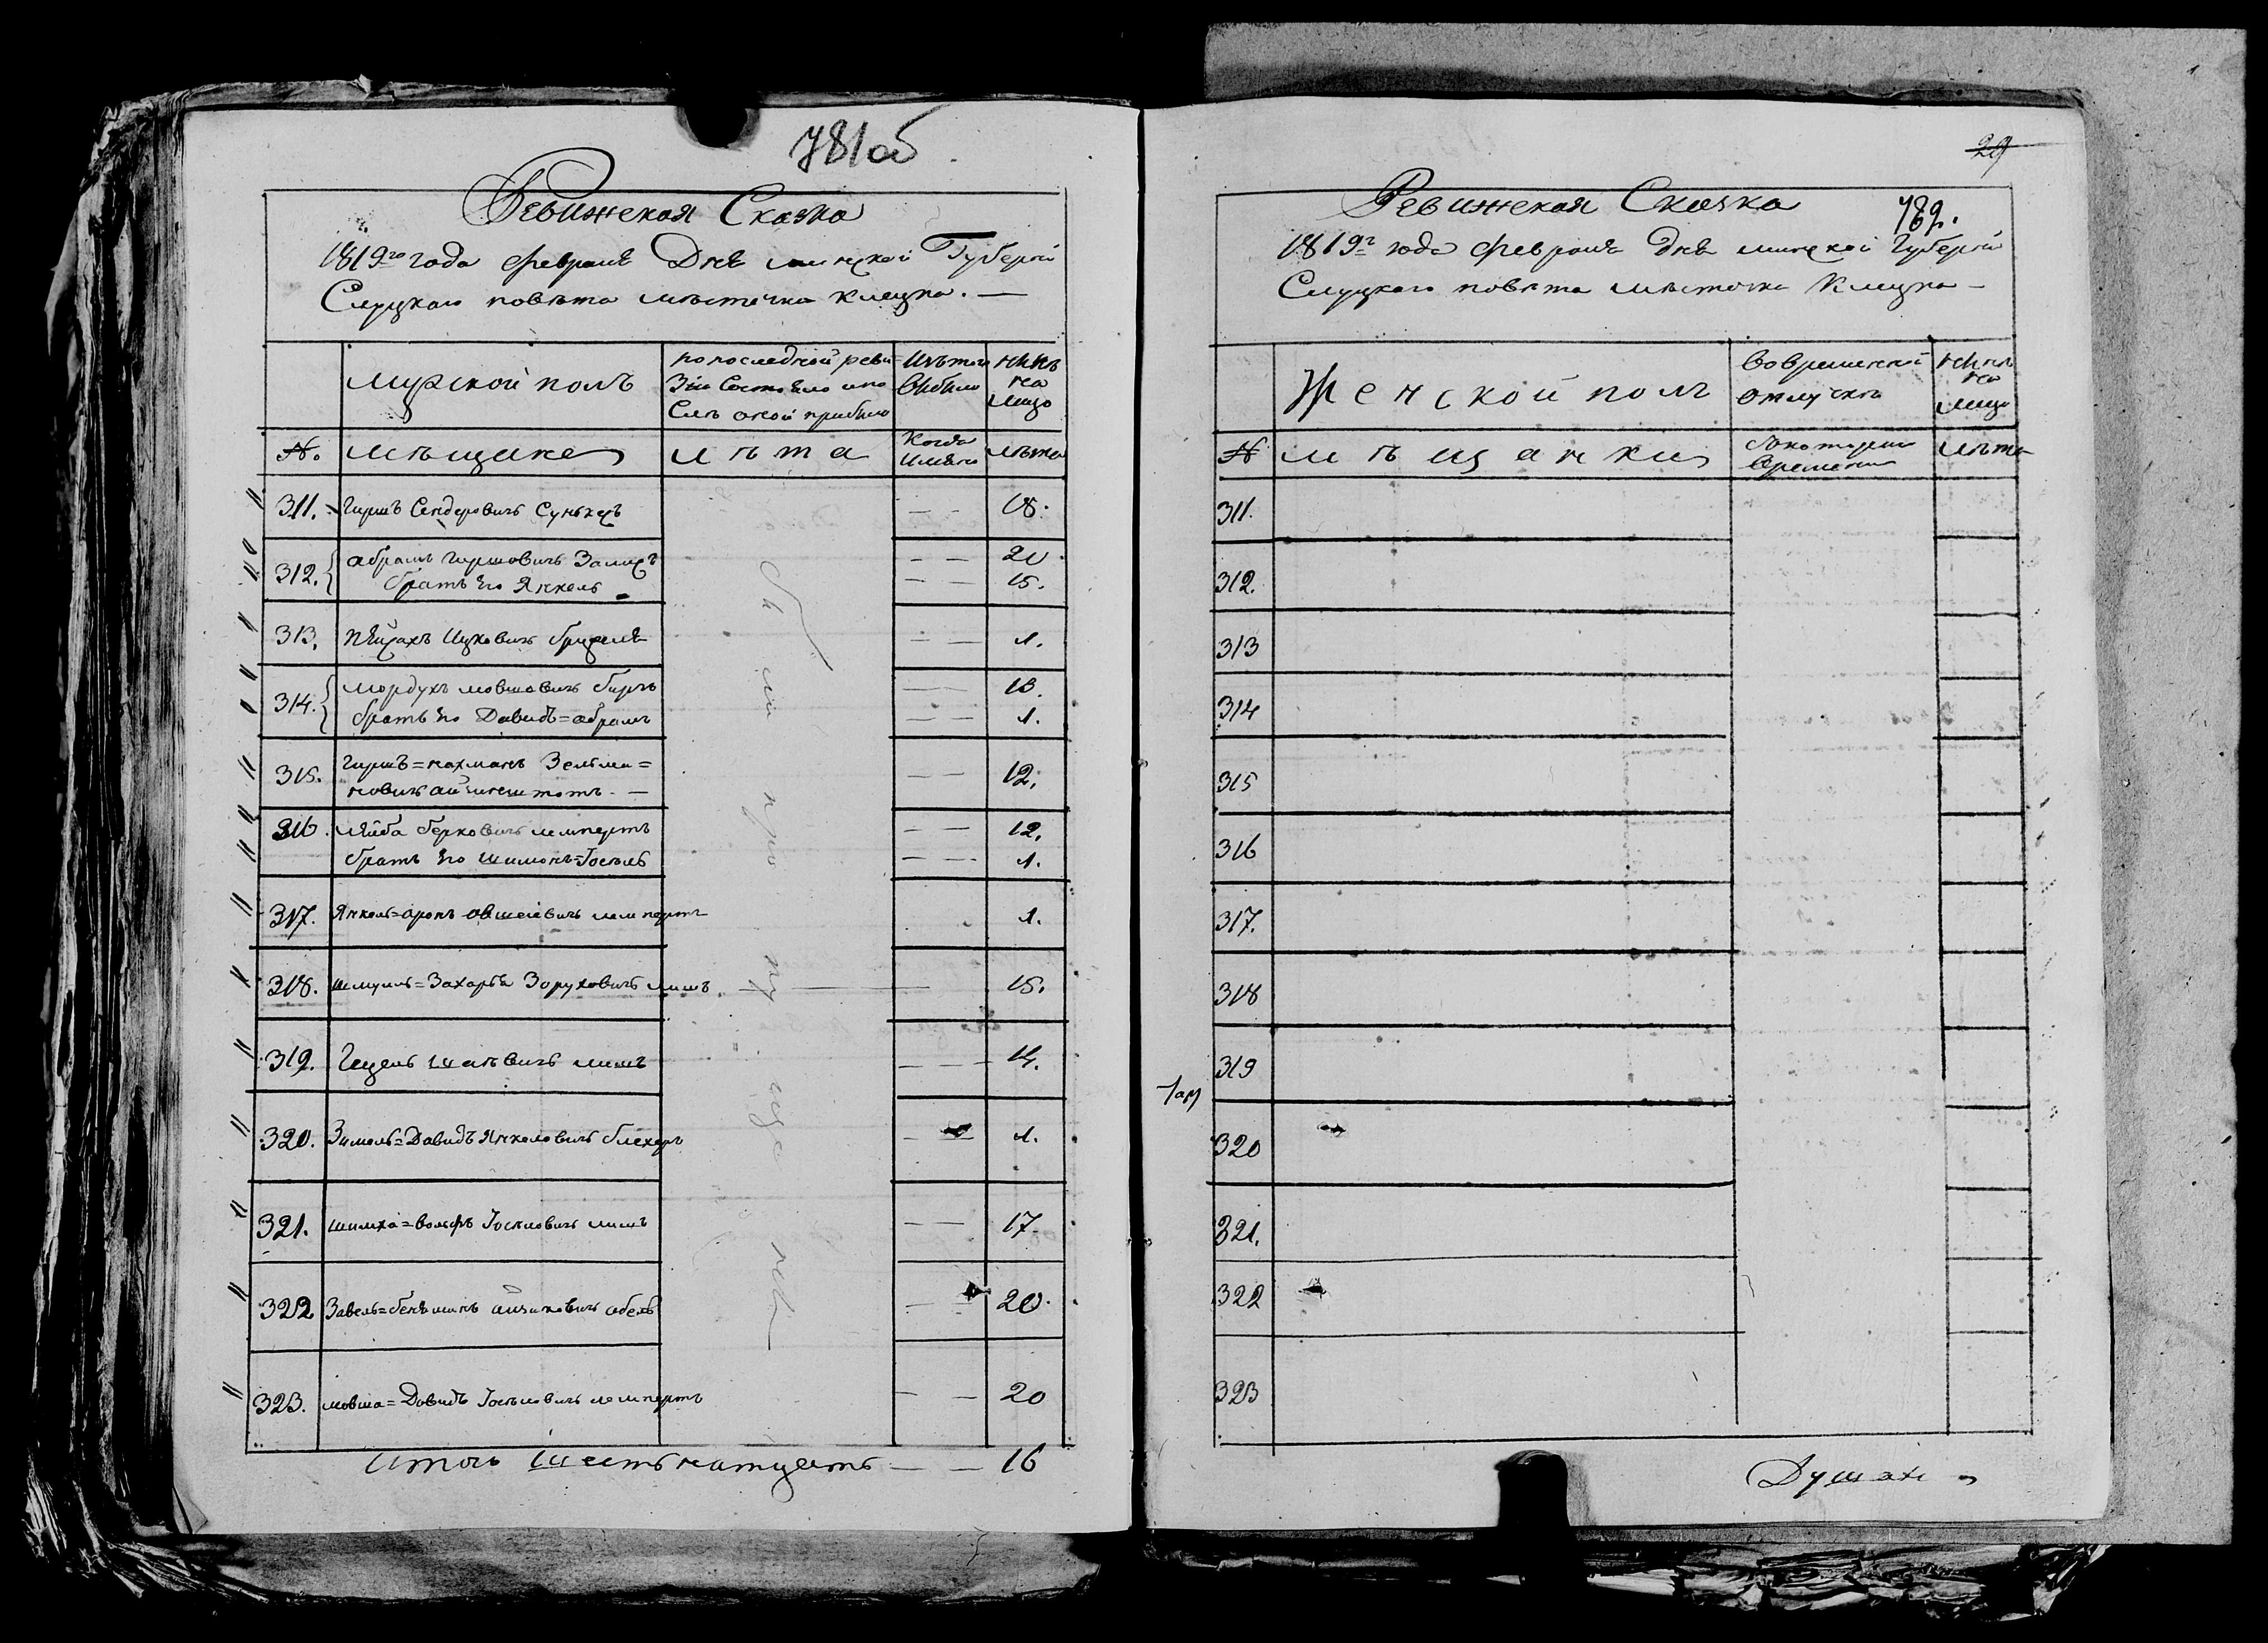 781об
Ревижская Сказка
1819го года февраля Дня минской Губерній
Слуцкаго повѣта мѣстечка Клецка. —
мужской полъ
по последной реви=
зіи Состояло и по
слѣ оной прибыло
Изъ того
выбыло
нинѣ
на
лицо
№.
мѣщане
лѣта
Когда
имянно
лѣта
311. Гиршъ Сендеровичъ — — 18.
312. абрамъ Гиршовичъ — — 20
братъ его Янкель — — 15.
313. пейсахъ Ицковичъ — — 1.
314. мордухъ мовшовичъ — — 13.
братъ его Давидъ=абрамъ — — 1.
315. Гиршъ=нахманъ Зельма= — — 12.
новичъ айзинштотъ. —
316. лейба берковичъ лемпертъ — — 12.
братъ его шимонъ=Іосель — — 1.
317. Янкель=аронъ овшеевичъ лемпертъ 1.
318. шмуила=Захарья Зоруховичъ лишъ — 15.
319. Гецель шаевичъ лишъ — — 14.
320. Зимель=Давидъ Янкелевичъ блехеръ — — 1.
321. шимха=вольфъ Іоселовичъ лишъ — — 17.
322 Завель=беняминъ айзиковичъ абель — — 20.
323. мовша=Давидъ Іоселовичъ лемпертъ — — 20
Итого шестьнатцеть — — 16
29
782.
Ревижская Сказка
1819г года февраля Дня минской Губерній
Слуцкаго повѣта мѣстечка Клецка —
Женской полъ
во временной
отлучкѣ
нинѣ
на
лицо
№
мѣщанки
съ котораго
времени
лѣта
311.
312.
313
314
315
316
317.
318
319
320
321.
322
323